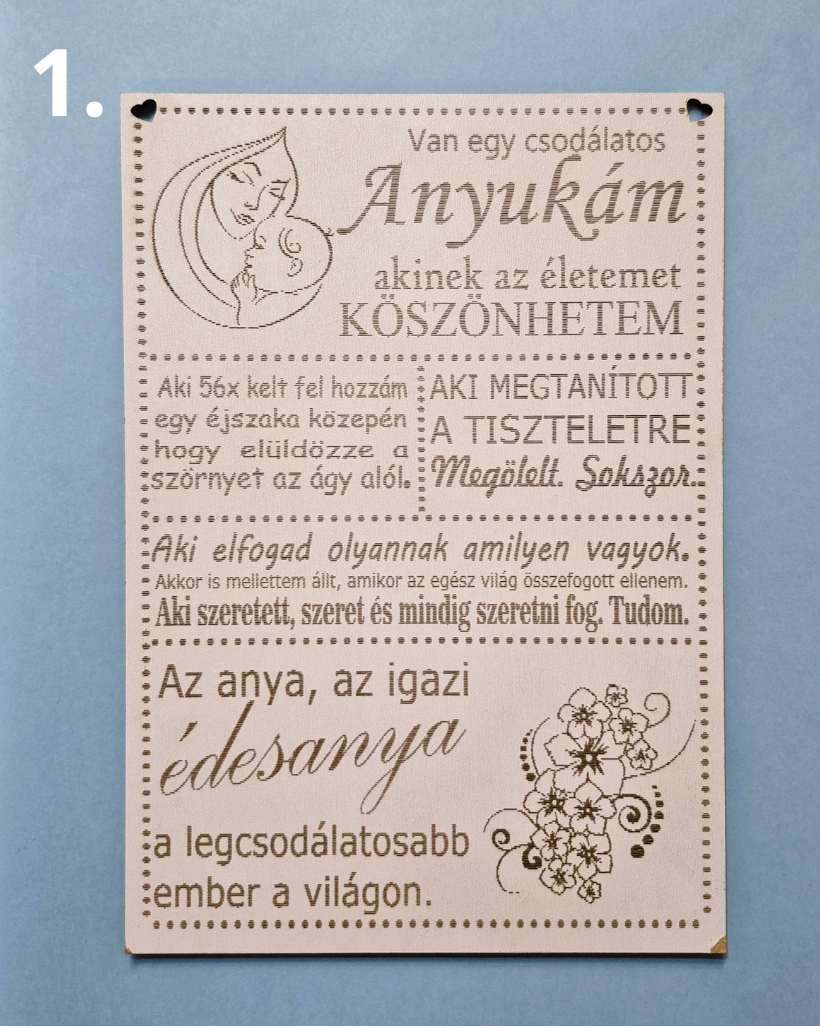 1.
Van egy csodálatos
Anyukám
akinek az életemet
KÖSZÖNHETEM
Aki 56x kelt fel hozzám
egy éjszaka közepén
hogy elüldözze a
szörnyet az ágy alól.
AKI MEGTANÍTOTT
A TISZTELETRE
Megölelt. Sokszor.
Aki elfogad olyannak amilyen vagyok.
Akkor is mellettem állt, amikor az egész világ összefogott ellenem.
Aki szeretett, szeret és mindig szeretni fog. Tudom.
Az anya, az igazi
édesanya
a legcsodálatosabb
ember a világon.